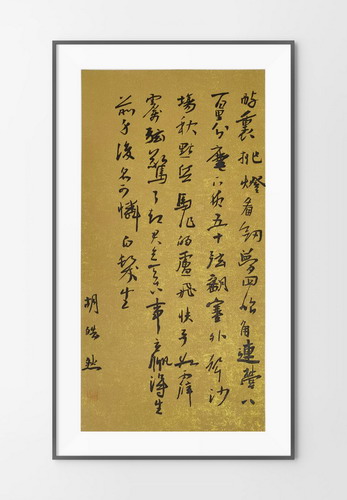 醉裏挑燈看劍夢回吹角連營八
百里分麾下炙五十弦翻塞外聲沙
場秋點兵馬作的盧飛快弓如霹
靂弦驚了却君王天下事贏得生
前身後名可憐白髮生
胡浩然